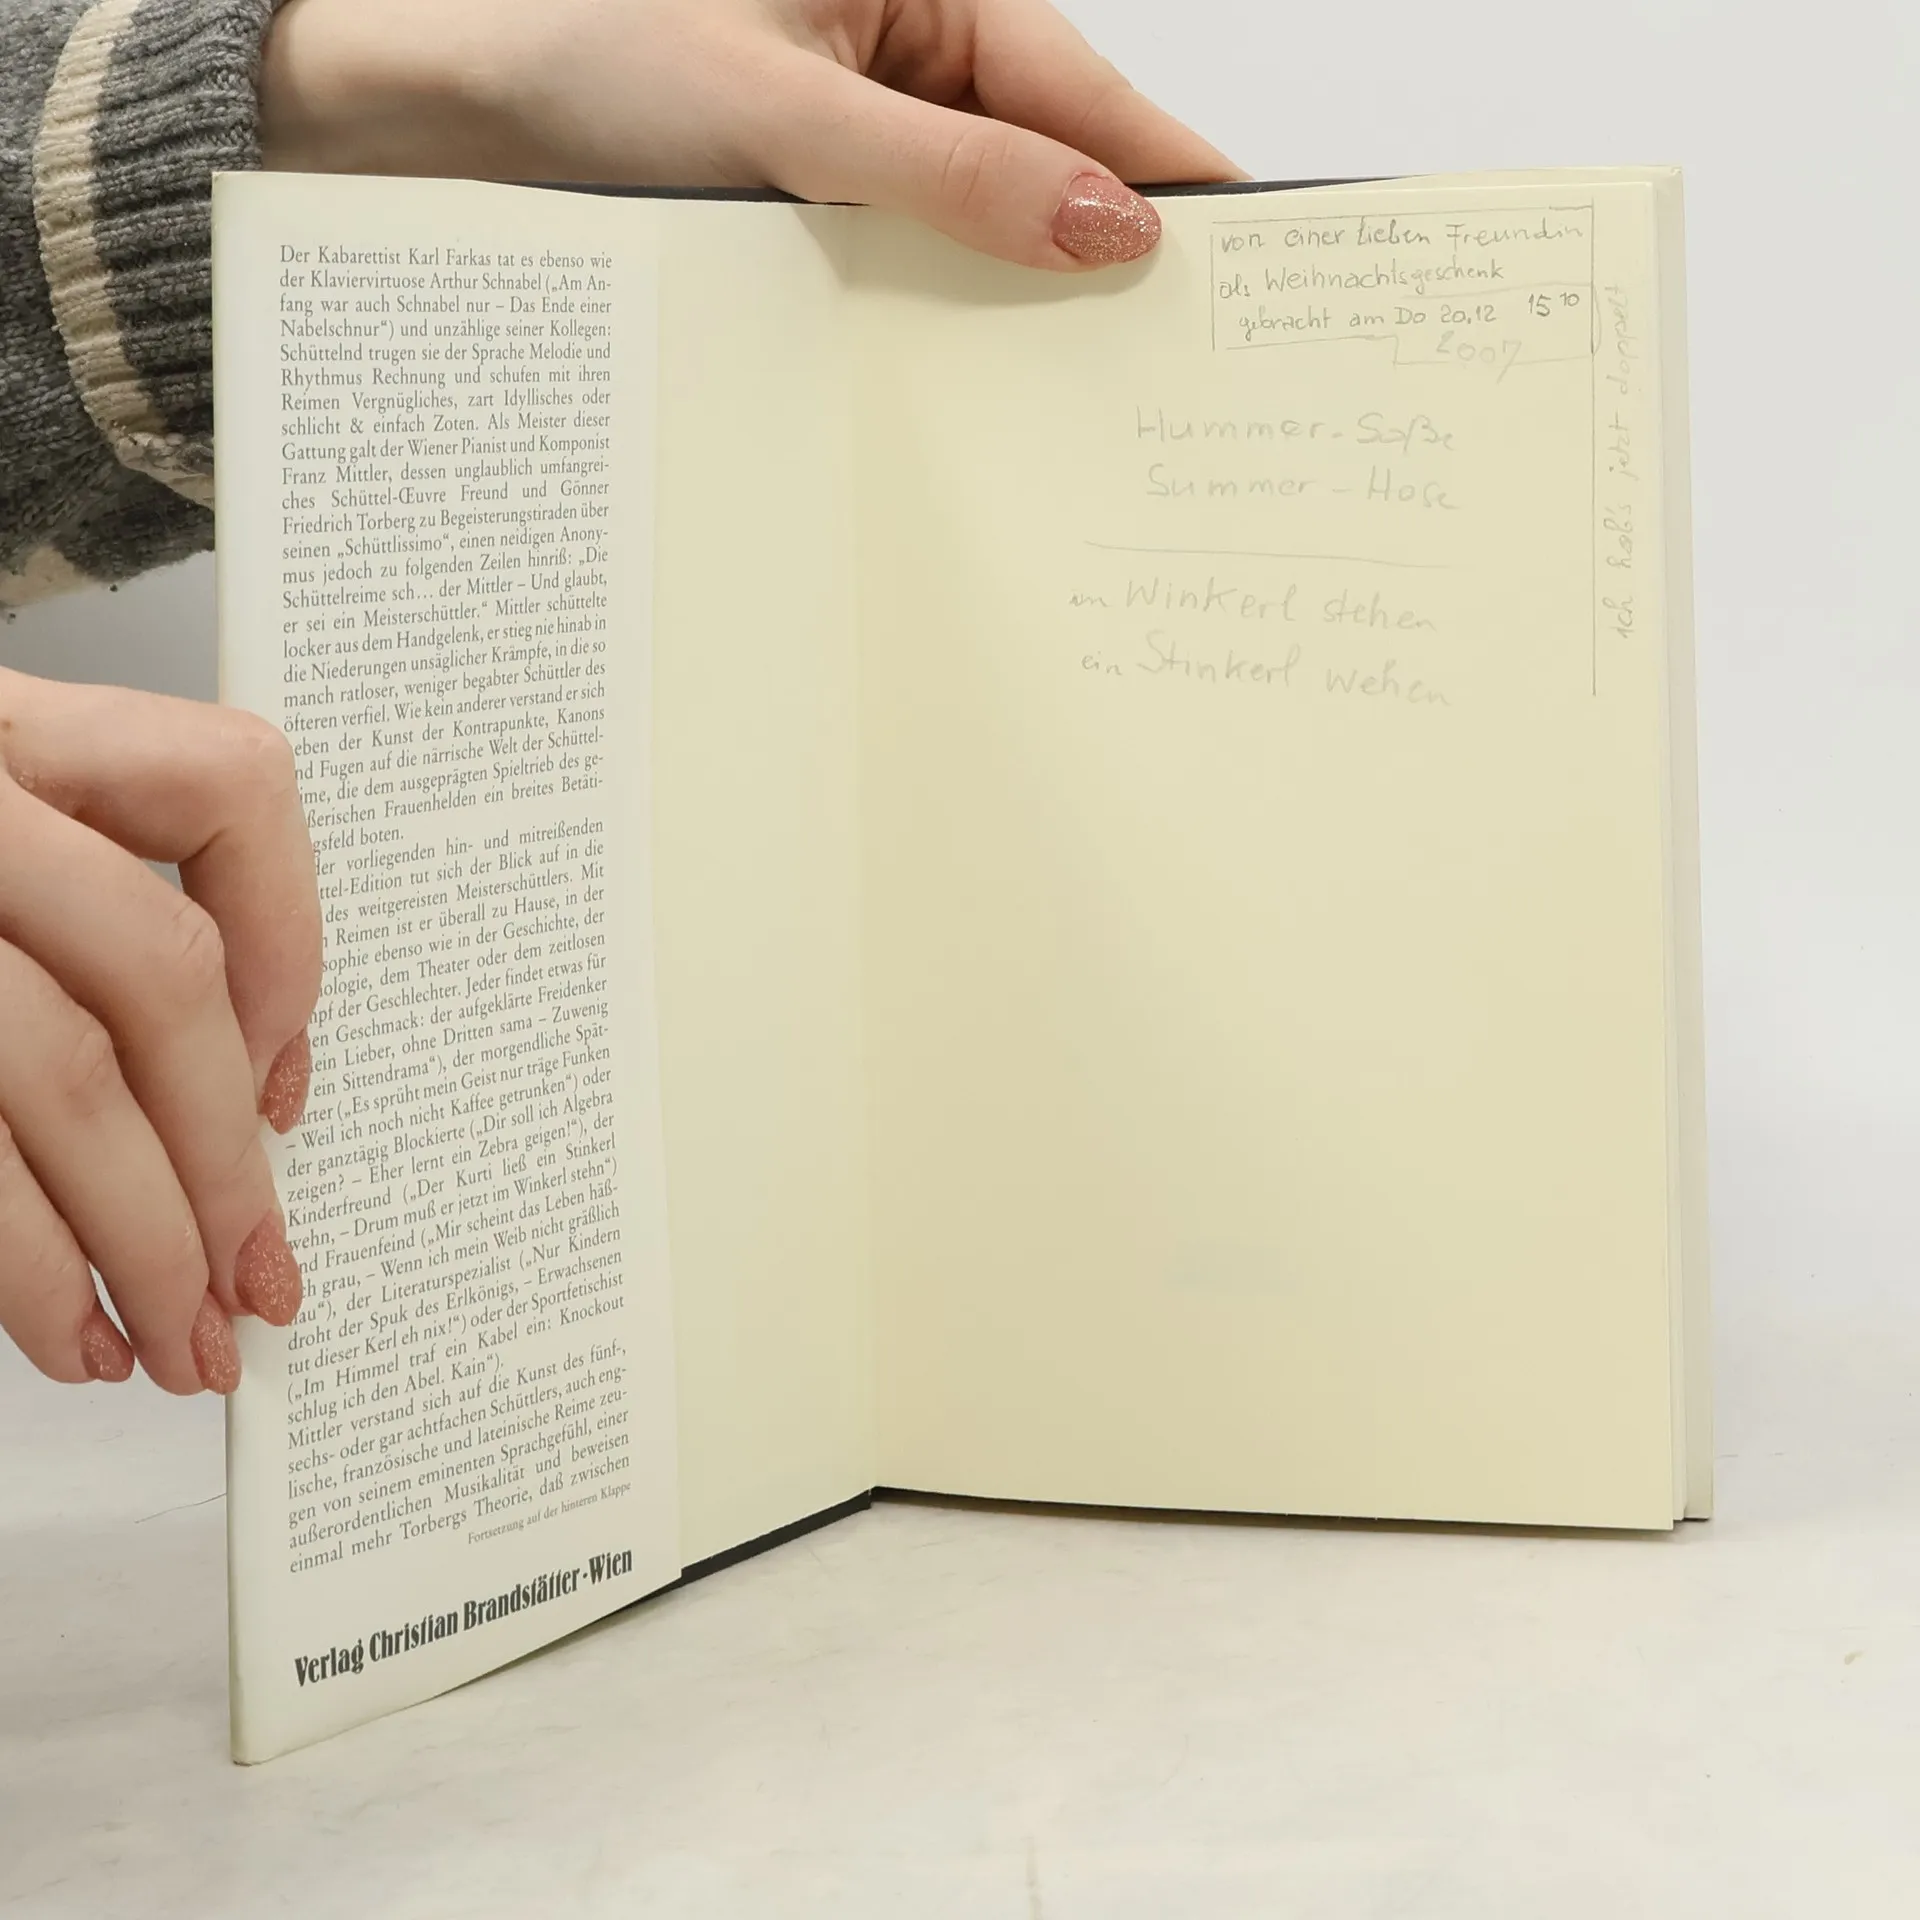 Der Kabarettist Karl Farkas tat es ebenso wie
der Klaviervirtuose Arthur Schnabel („Am An-
fang war auch Schnabel nur – Das Ende einer
Nabelschnur“) und unzählige seiner Kollegen:
Schüttelnd trugen sie der Sprache Melodie und
Rhythmus Rechnung und schufen mit ihren
Reimen Vergnügliches, zart Idyllisches oder
schlicht & einfach Zoten. Als Meister dieser
Gattung galt der Wiener Pianist und Komponist
Franz Mittler, dessen unglaublich umfangrei-
ches Schüttel-Œuvre Freund und Gönner
Friedrich Torberg zu Begeisterungstiraden über
seinen „Schüttlissimo“, einen neidigen Anony-
mus jedoch zu folgenden Zeilen hinriß: „Die
Schüttelreime sch... der Mittler – Und glaubt,
er sei ein Meisterschüttler.“ Mittler schüttelte
locker aus dem Handgelenk, er stieg nie hinab in
die Niederungen unsäglicher Krämpfe, in die so
manch ratloser, weniger begabter Schüttler des
öfteren verfiel. Wie kein anderer verstand er sich
eben der Kunst der Kontrapunkte, Kanons
nd Fugen auf die närrische Welt der Schüttel-
ime, die dem ausgeprägten Spieltrieb des ge-
ßerischen Frauenhelden ein breites Betäti-
gsfeld boten.
der vorliegenden hin- und mitreißenden
ttel-Edition tut sich der Blick auf in die
des weitgereisten Meisterschüttlers. Mit
n Reimen ist er überall zu Hause, in der
sophie ebenso wie in der Geschichte, der
ologie, dem Theater oder dem zeitlosen
mpf der Geschlechter. Jeder findet etwas für
en Geschmack: der aufgeklärte Freidenker
ein Lieber, ohne Dritten sama – Zuwenig
ein Sittendrama“), der morgendliche Spät-
arter („Es sprüht mein Geist nur träge Funken
– Weil ich noch nicht Kaffee getrunken“) oder
der ganztägig Blockierte („Dir soll ich Algebra
zeigen? – Eher lernt ein Zebra geigen!“), der
Kinderfreund („Der Kurti ließ ein Stinkerl
wehn, – Drum muß er jetzt im Winkerl stehn“)
nd Frauenfeind („Mir scheint das Leben häß-
ch grau, – Wenn ich mein Weib nicht gräßlich
hau“), der Literaturspezialist („Nur Kindern
droht der Spuk des Erlkönigs, – Erwachsenen
tut dieser Kerl eh nix!“) oder der Sportfetischist
(„Im Himmel traf ein Kabel ein: Knockout
schlug ich den Abel. Kain“).
Mittler verstand sich auf die Kunst des fünf-,
sechs- oder gar achtfachen Schüttlers, auch eng-
lische, französische und lateinische Reime zeu-
gen von seinem eminenten Sprachgefühl, einer
außerordentlichen Musikalität und beweisen
einmal mehr Torbergs Theorie, daß zwischen
Fortsetzung auf der hinteren Klappe
Verlag Christian Brandstätter · Wien
von einer lieben Freundin
als Weihnachtsgeschenk
gebracht am Do 20.12 15 10
2007
ich hab's jetzt doppelt
Hummer-Soße
Summer-Hose
im Winkerl stehen
ein Stinkerl wehen